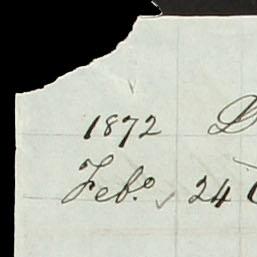 1872
Feb.º 24